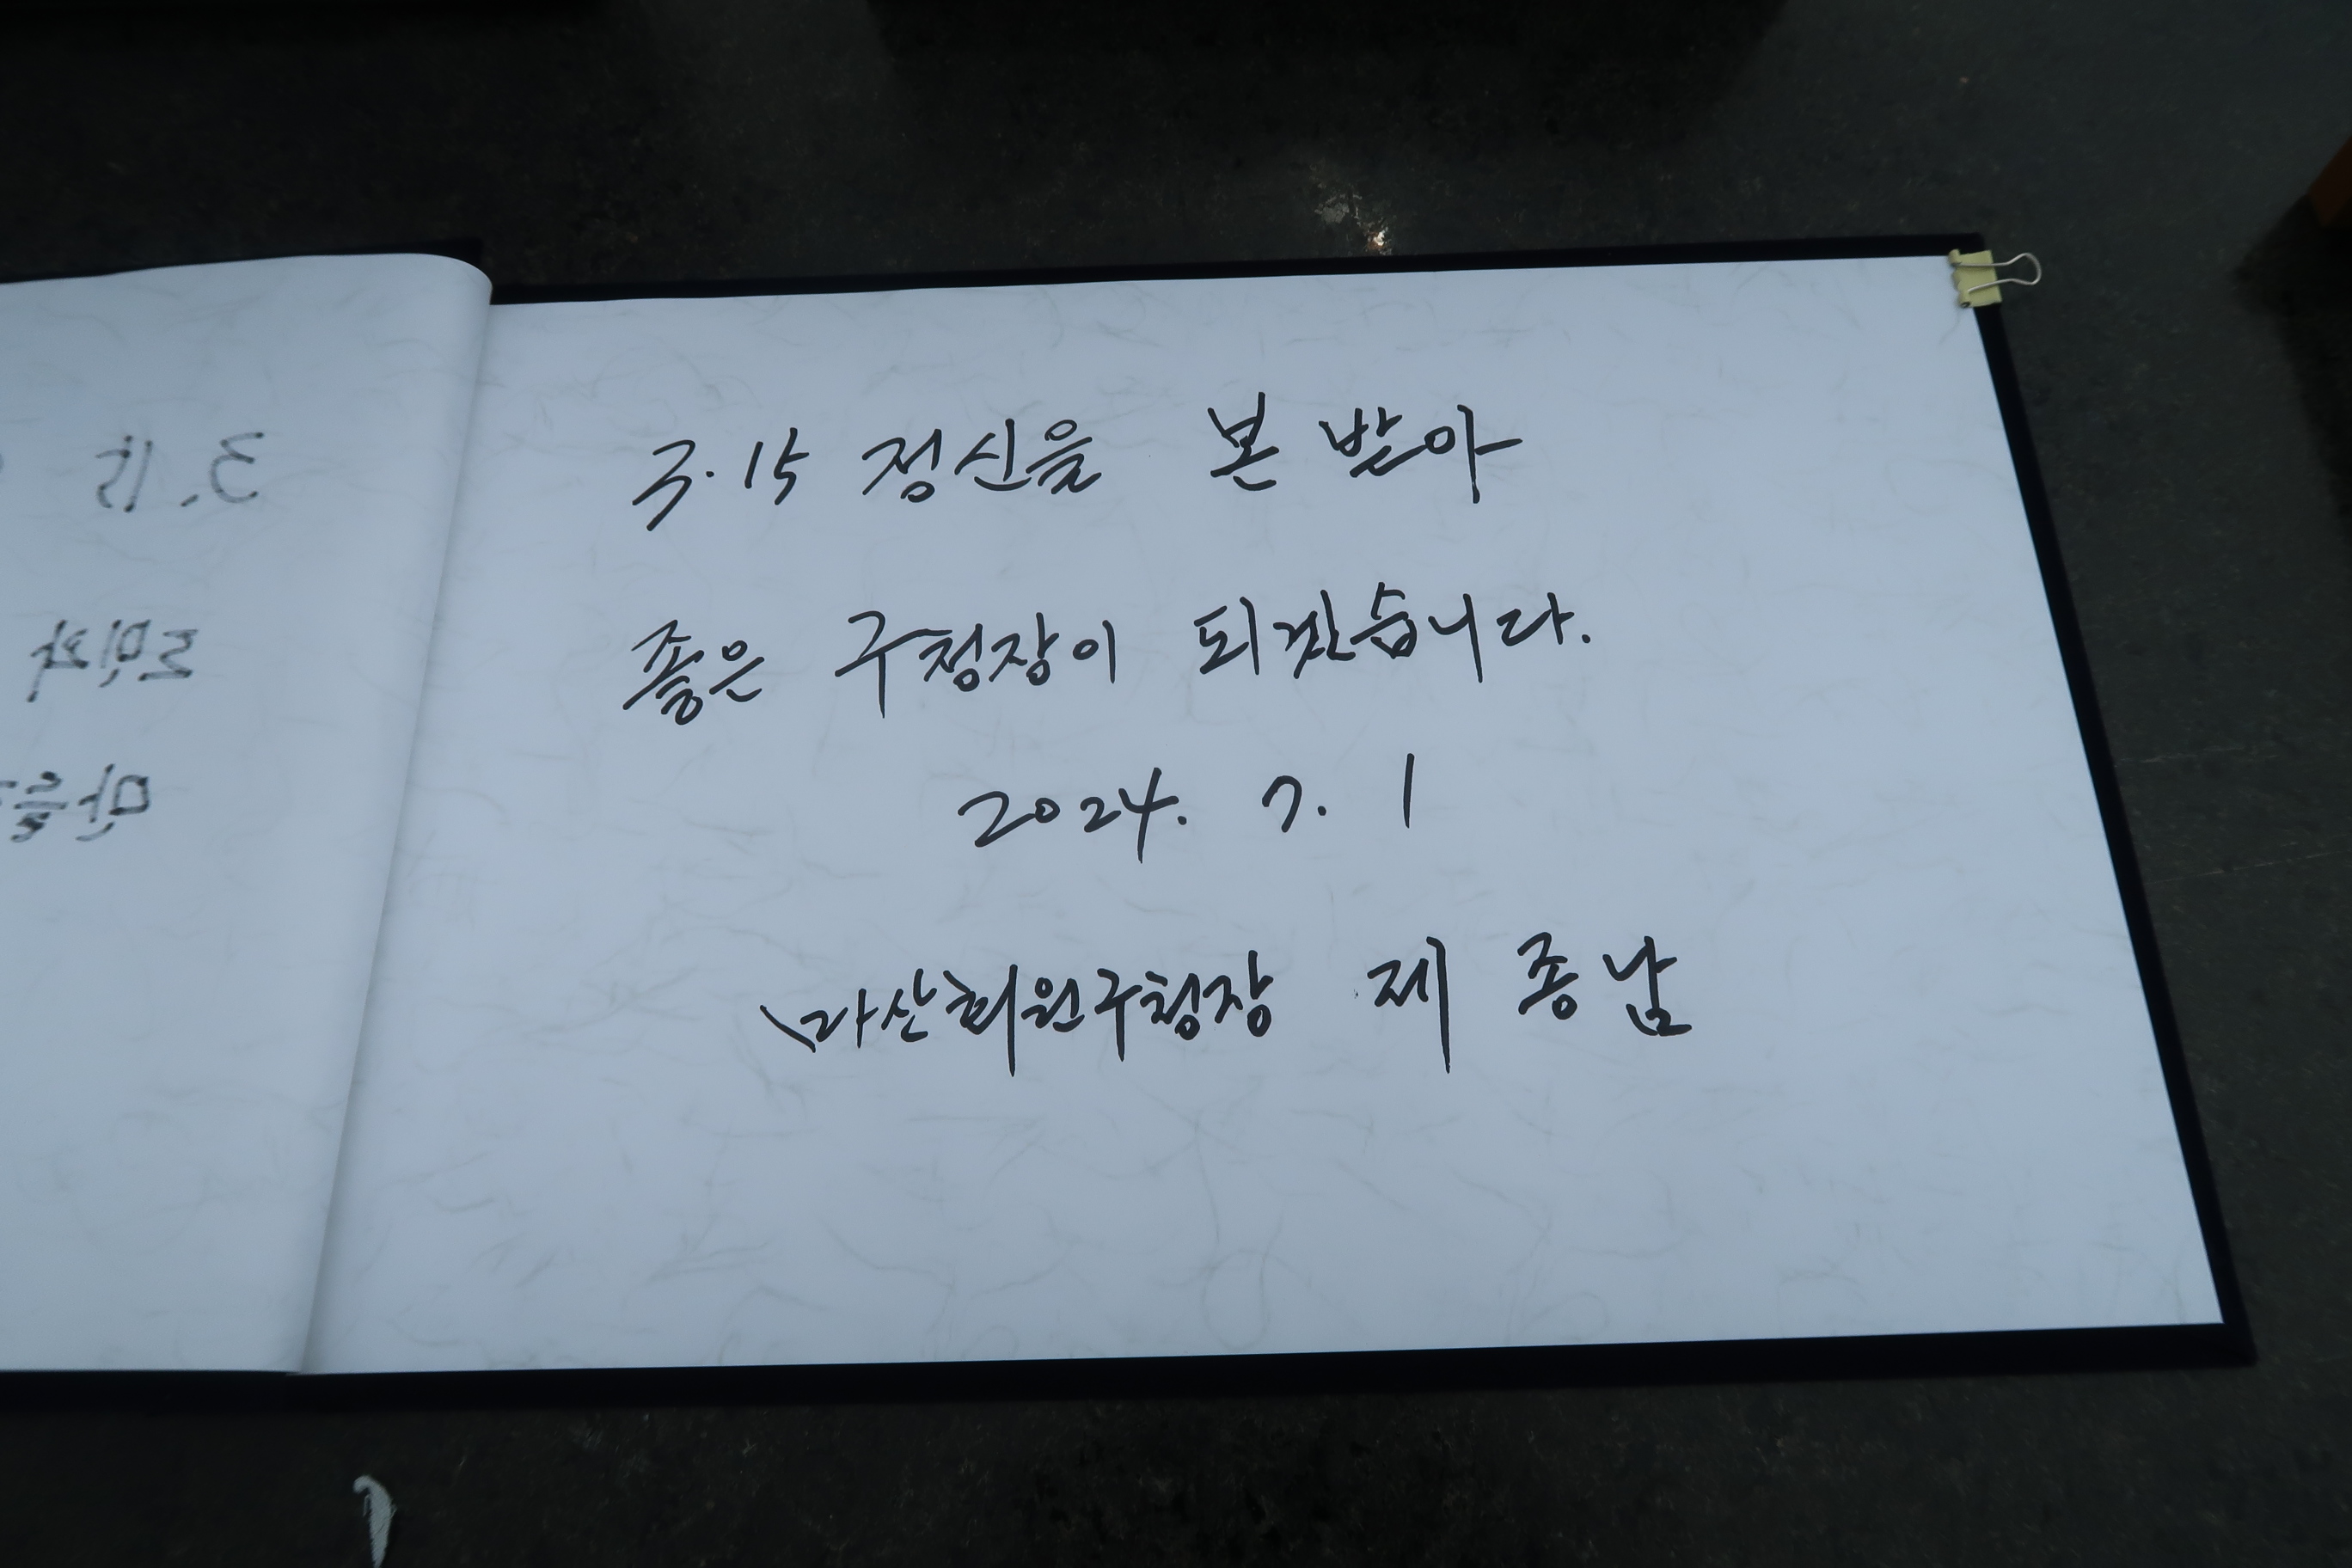 3.15 정신을 본받아
좋은 구청장이 되겠습니다.
2024. 7. 1
마산회원구청장 제종남
3.15